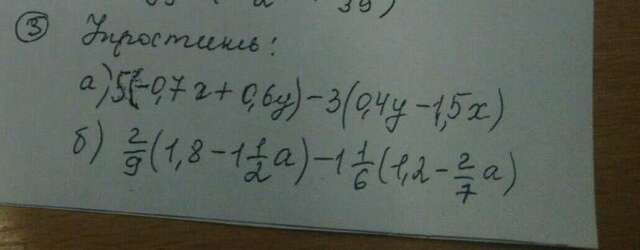 39)
③ Упростить:
а) 5(-0,7x + 0,6y) - 3(0,4y - 1,5x)
б) 2/9 (1,8 - 1 1/2 a) - 1 1/6 (1,2 - 2/7 a)